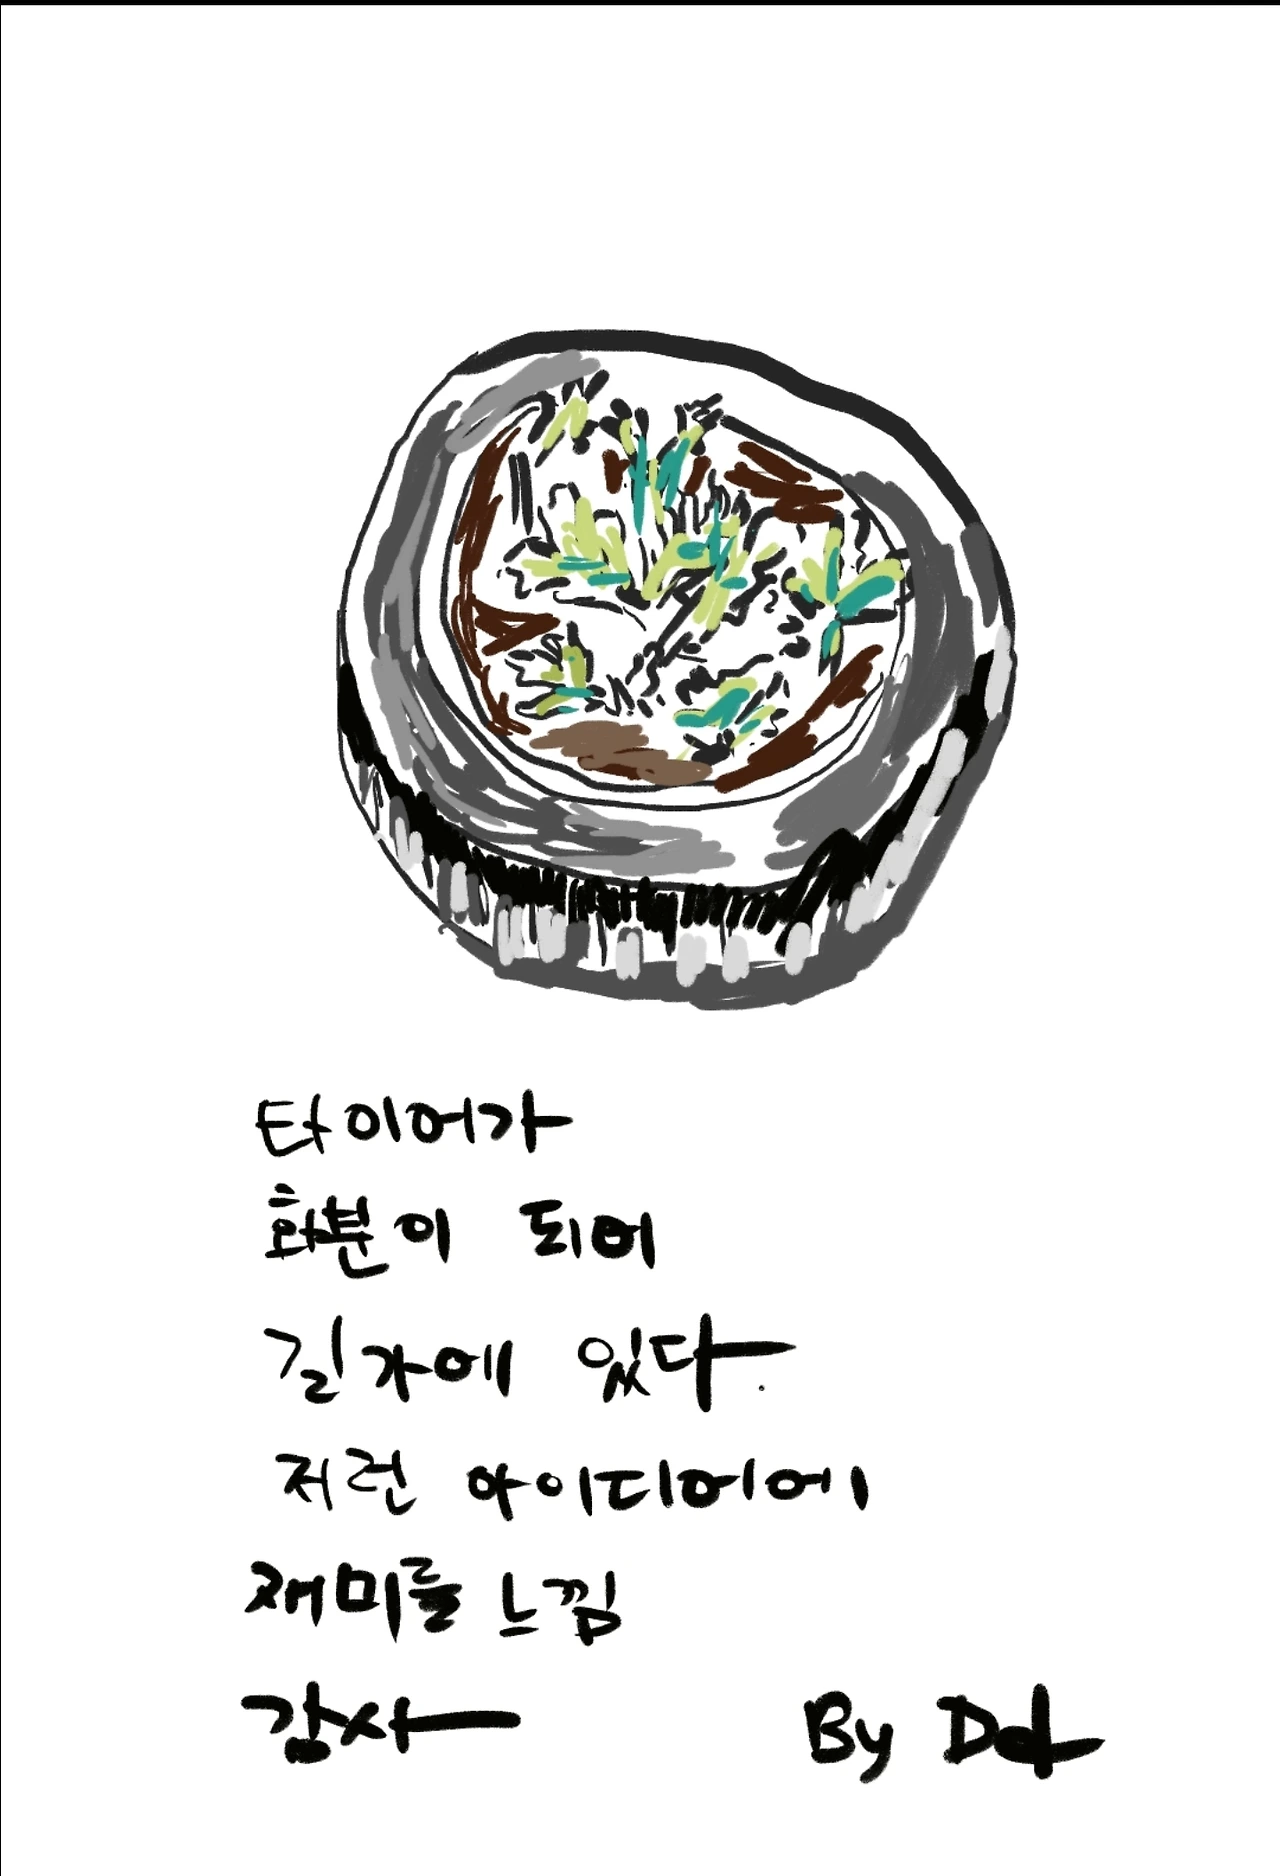 타이어가
화분이 되어
길가에 있다.
저런 아이디어에
재미를 느낌
감사
By